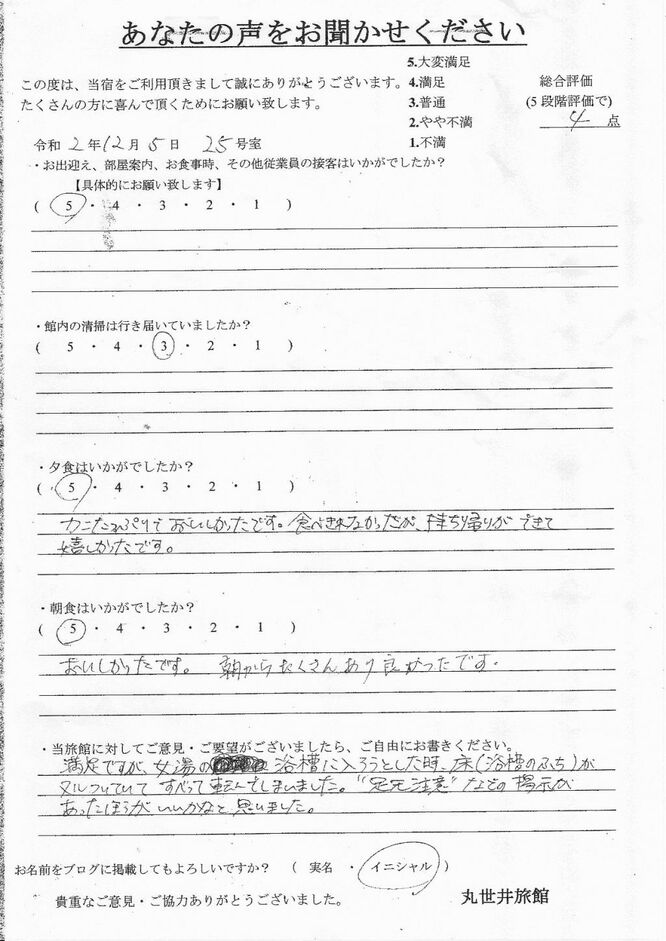 あなたの声をお聞かせください
この度は、当宿をご利用頂きまして誠にありがとうございます。
たくさんの方に喜んで頂くためにお願い致します。
5.大変満足
4.満足
3.普通
2.やや不満
1.不満
総合評価
(5段階評価で)
4 点
令和 2 年 12 月 5 日 25 号室
・お出迎え、部屋案内、お食事時、その他従業員の接客はいかがでしたか?
【具体的にお願い致します】
( 5 ・ 4 ・ 3 ・ 2 ・ 1 )
・館内の清掃は行き届いていましたか?
( 5 ・ 4 ・ 3 ・ 2 ・ 1 )
・夕食はいかがでしたか?
( 5 ・ 4 ・ 3 ・ 2 ・ 1 )
カニたっぷりでおいしかったです。食べきれなかったが、持ち帰りができて
嬉しかったです。
・朝食はいかがでしたか?
( 5 ・ 4 ・ 3 ・ 2 ・ 1 )
おいしかったです。 朝からたくさんあり良かったです。
・当旅館に対してご意見・ご要望がございましたら、ご自由にお書きください。
満足ですが、女湯の 浴槽に入ろうとした時、床(浴槽のふち)が
ヌルついていてすべって転んでしまいました。"足元注意"などの掲示が
あったほうがいいかなと思いました。
お名前をブログに掲載してもよろしいですか? ( 実名 ・ イニシャル )
貴重なご意見・ご協力ありがとうございました。
丸世井旅館